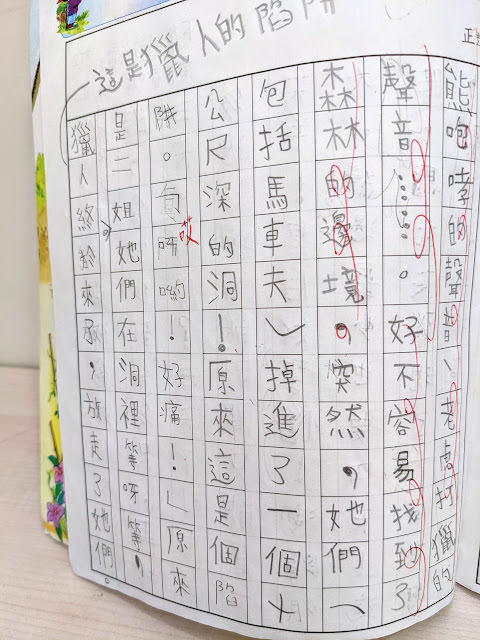 這是獵人的陷阱
熊咆哮的聲音、老虎打獵的
聲音……。好不容易找到了
森林的邊境，突然，她們（
包括馬車夫）掉進了一個十
公尺深的洞！原來這是個陷
阱。呀喲！好痛！」原來
是二姐她們在洞裡等呀等，
獵人終於來，放走了她們。